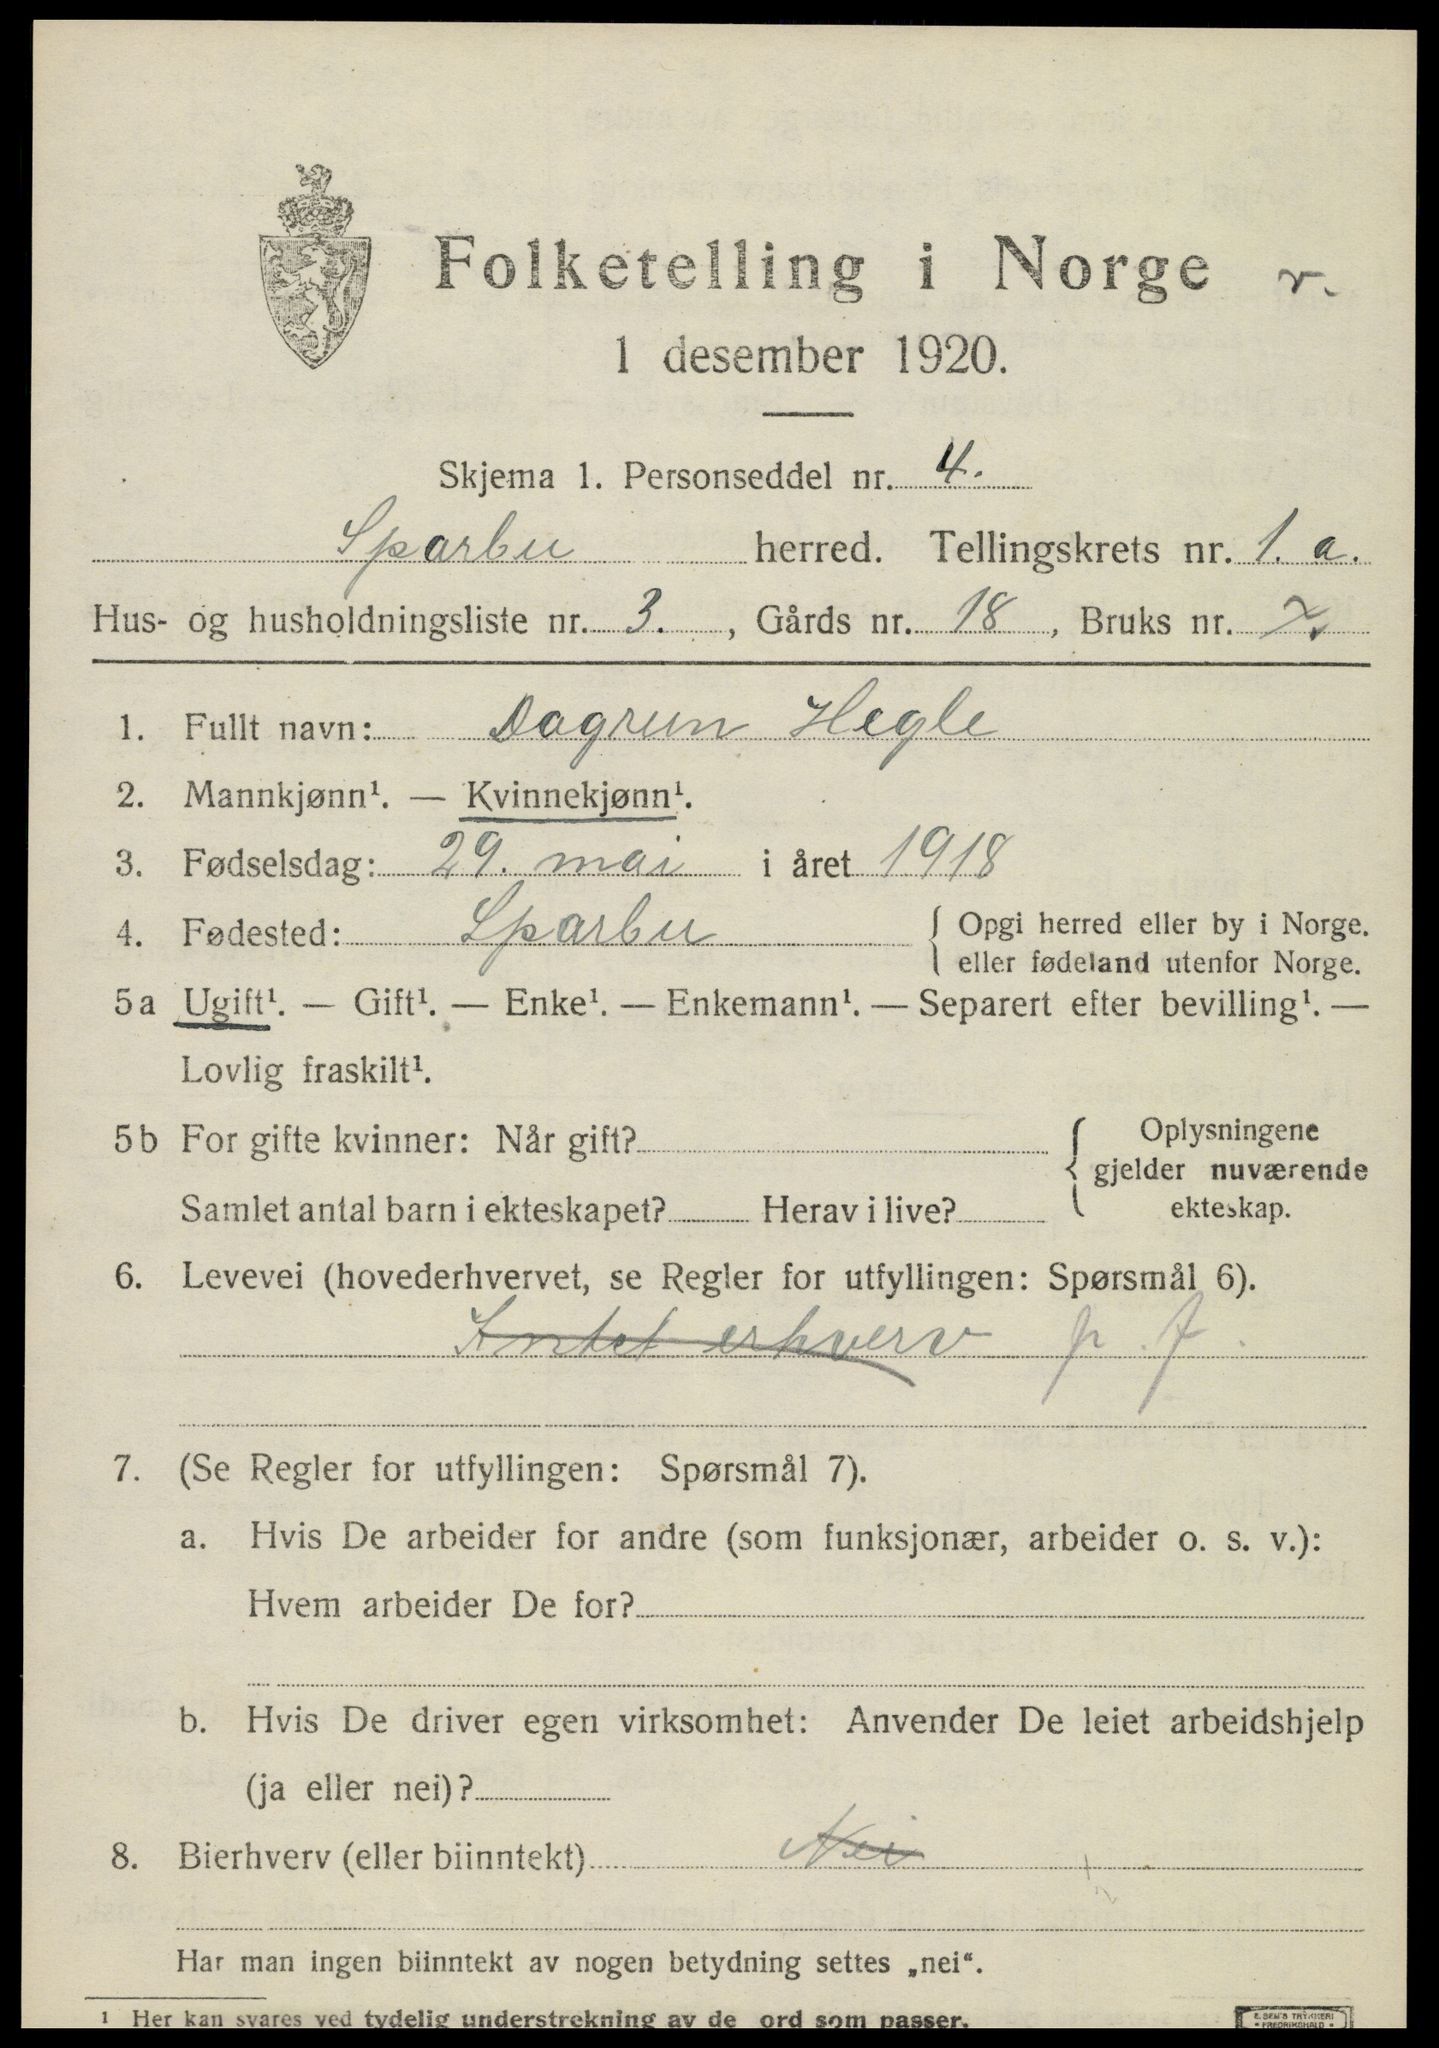 Folketelling i Norge v.
1 desember 1920.
Skjema 1. Personseddel nr. 4.
Sparbu herred. Tellingskrets nr. 1. a.
Hus- og husholdningsliste nr. 3. , Gårds nr. 18 , Bruks nr.
1. Fullt navn: Dagrun Hegle
2. Mannkjønn¹. — Kvinnekjønn¹.
3. Fødselsdag: 29. mai i året 1918
4. Fødested: Sparbu { Opgi herred eller by i Norge.
eller fødeland utenfor Norge.
5a Ugift¹. — Gift¹. — Enke¹. — Enkemann¹. — Separert efter bevilling¹. —
Lovlig fraskilt¹.
5b For gifte kvinner: Når gift? { Oplysningene
gjelder nuværende
Samlet antal barn i ekteskapet? Herav i live? ekteskap.
6. Levevei (hovederhvervet, se Regler for utfyllingen: Spørsmål 6).
Intet erhverv p. f.
7. (Se Regler for utfyllingen: Spørsmål 7).
a. Hvis De arbeider for andre (som funksjonær, arbeider o. s. v.):
Hvem arbeider De for?
b. Hvis De driver egen virksomhet: Anvender De leiet arbeidshjelp
(ja eller nei)?
8. Bierhverv (eller biinntekt) Nei
Har man ingen biinntekt av nogen betydning settes „nei“.
¹ Her kan svares ved tydelig understrekning av de ord som passer.
E. SEM'S TRYKKERI
• FREDRIKSHALD •